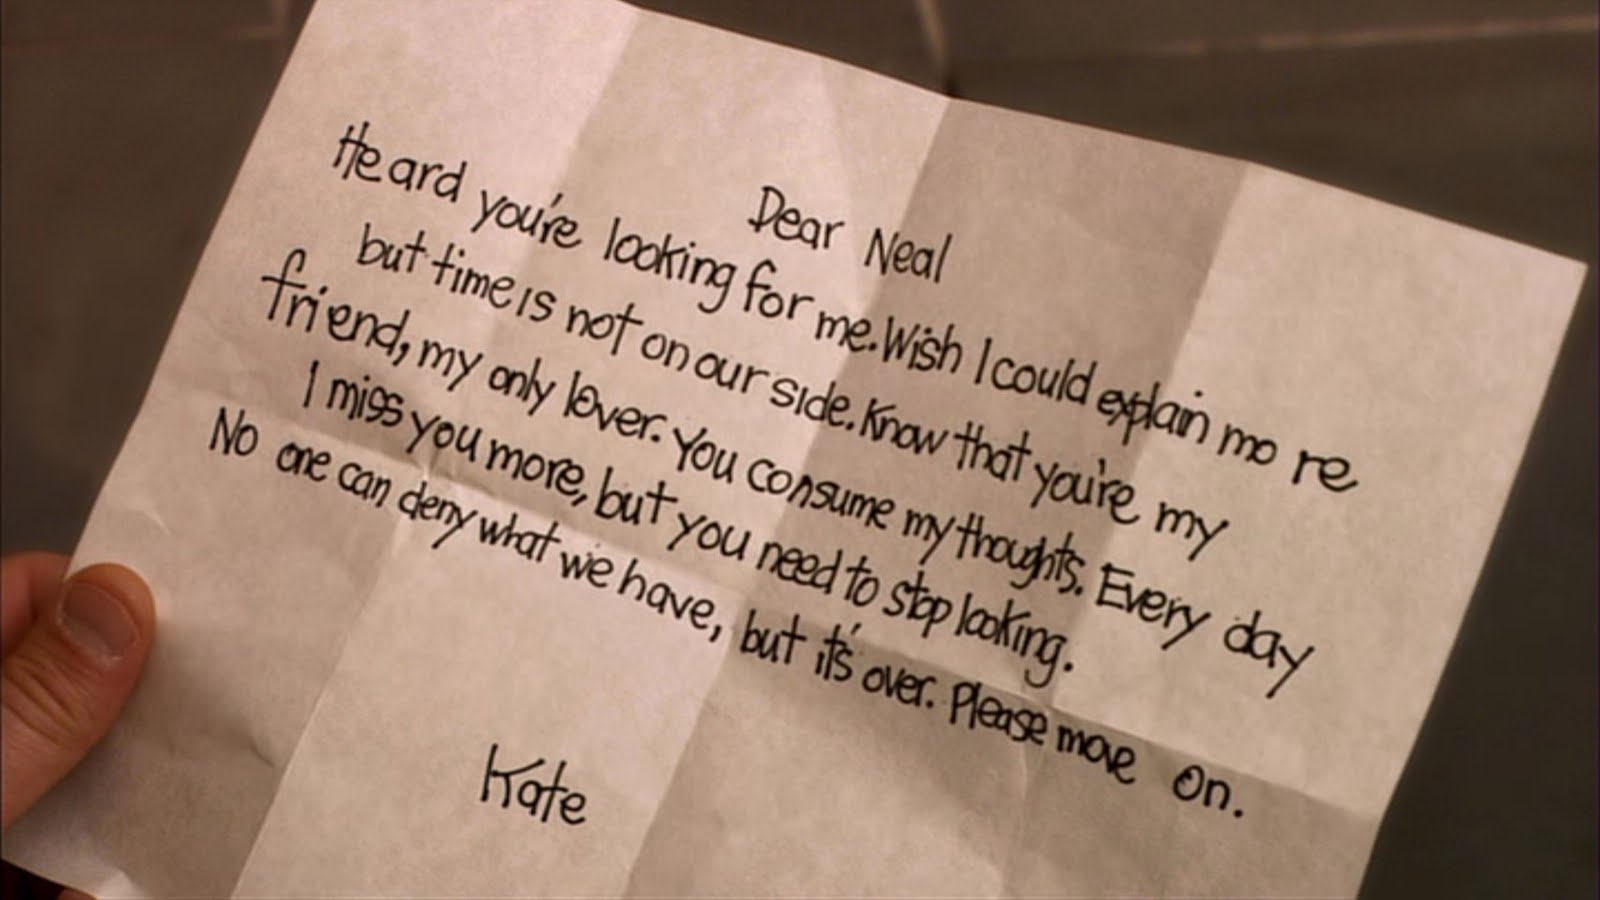 Dear Neal
Heard you're looking for me. Wish I could explain more
but time is not on our side. Know that you're my
friend, my only lover. You consume my thoughts. Every day
I miss you more, but you need to stop looking.
No one can deny what we have, but it's over. Please move on.
Kate